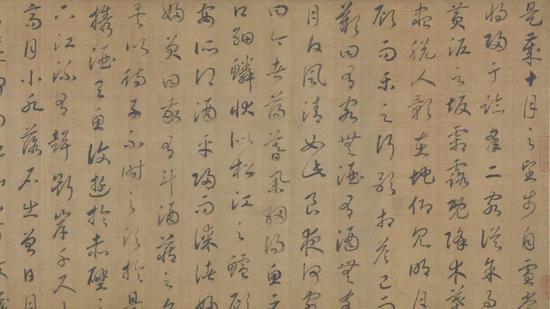 是歲十月之望步自雪堂
將歸于臨皋二客從予過
黃泥之坂霜露既降木葉
盡脫人影在地仰見明月
顧而樂之行歌相答已而
歎曰有客無酒有酒無肴
月白風清如此良夜何客
曰今者薄暮舉網得魚巨
口細鱗狀似松江之鱸顧
安所得酒乎歸而謀諸婦
婦曰我有斗酒藏之久
矣以待子不時之須於是
攜酒與魚復遊於赤壁之
下江流有聲斷岸千尺山
高月小水落石出曾日月